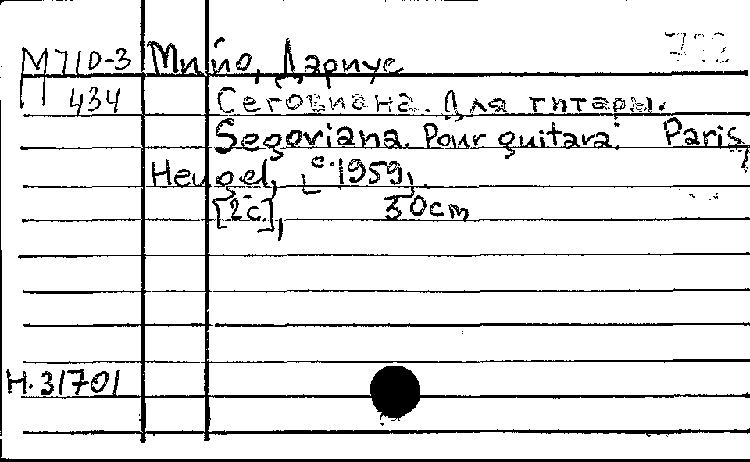 М 710-3 Мийо, Дариус
П 434 Сеговиана. Для гитары.
Segoviana. Pour guitara. Paris,
Heugel, [c. 1959].
[2 c.], 30 cm
H. 31701